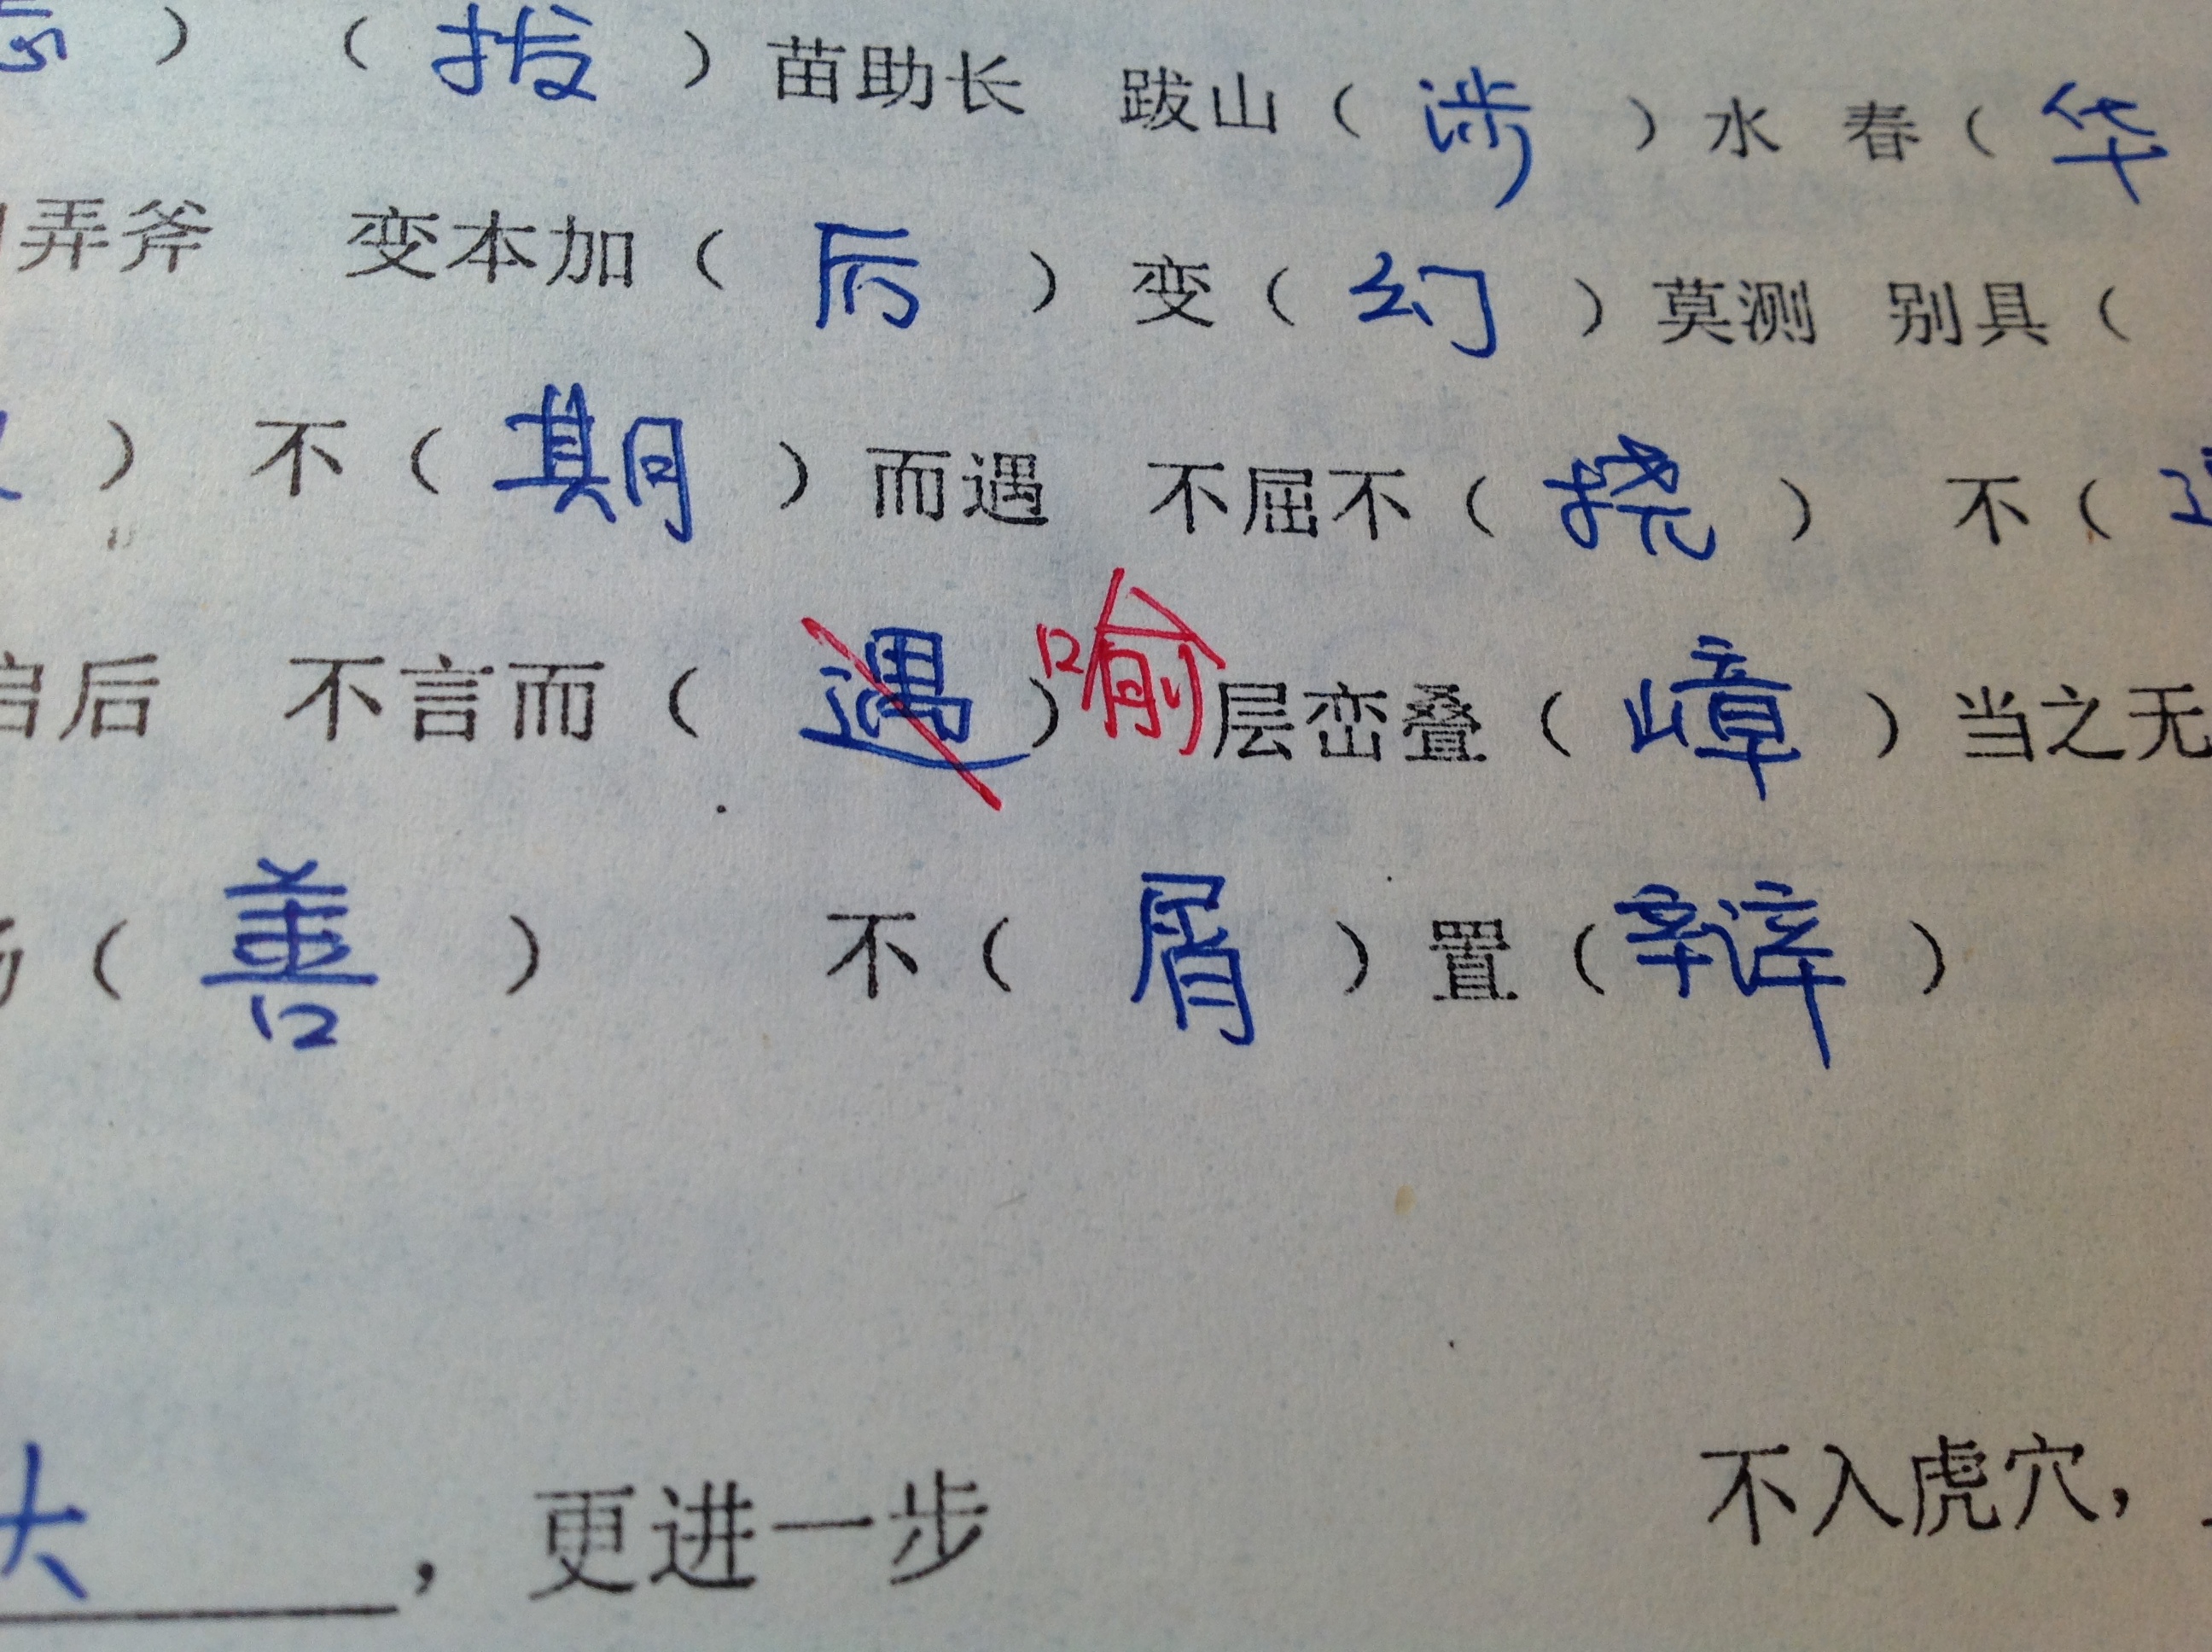 ）（拔）苗助长 跋山（涉）水 春（华
弄斧 变本加（厉）变（幻）莫测 别具（
） 不（期）而遇 不屈不（挠） 不（
启后 不言而（遇）喻 层峦叠（嶂）当之无
（善） 不（屑）置（辩）
大，更进一步 不入虎穴，